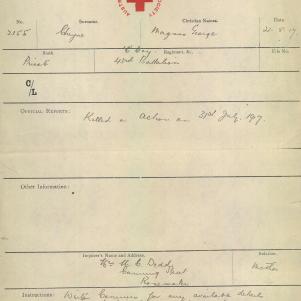 No. Surname. Christian Names. Date
2155 Magnus George 21. 8. 17
Rank "C" Coy Regiment, &c. File No.
Private 43rd Battalion
C/L
OFFICIAL REPORTS: Killed in Action on 31st July, 1917.
Other Information:
Inquirer's Name and Address. Relation.
Mrs. M. C. Deddy Mother
Canning Street
Rosewater
Instructions: Write Commrs for any available details